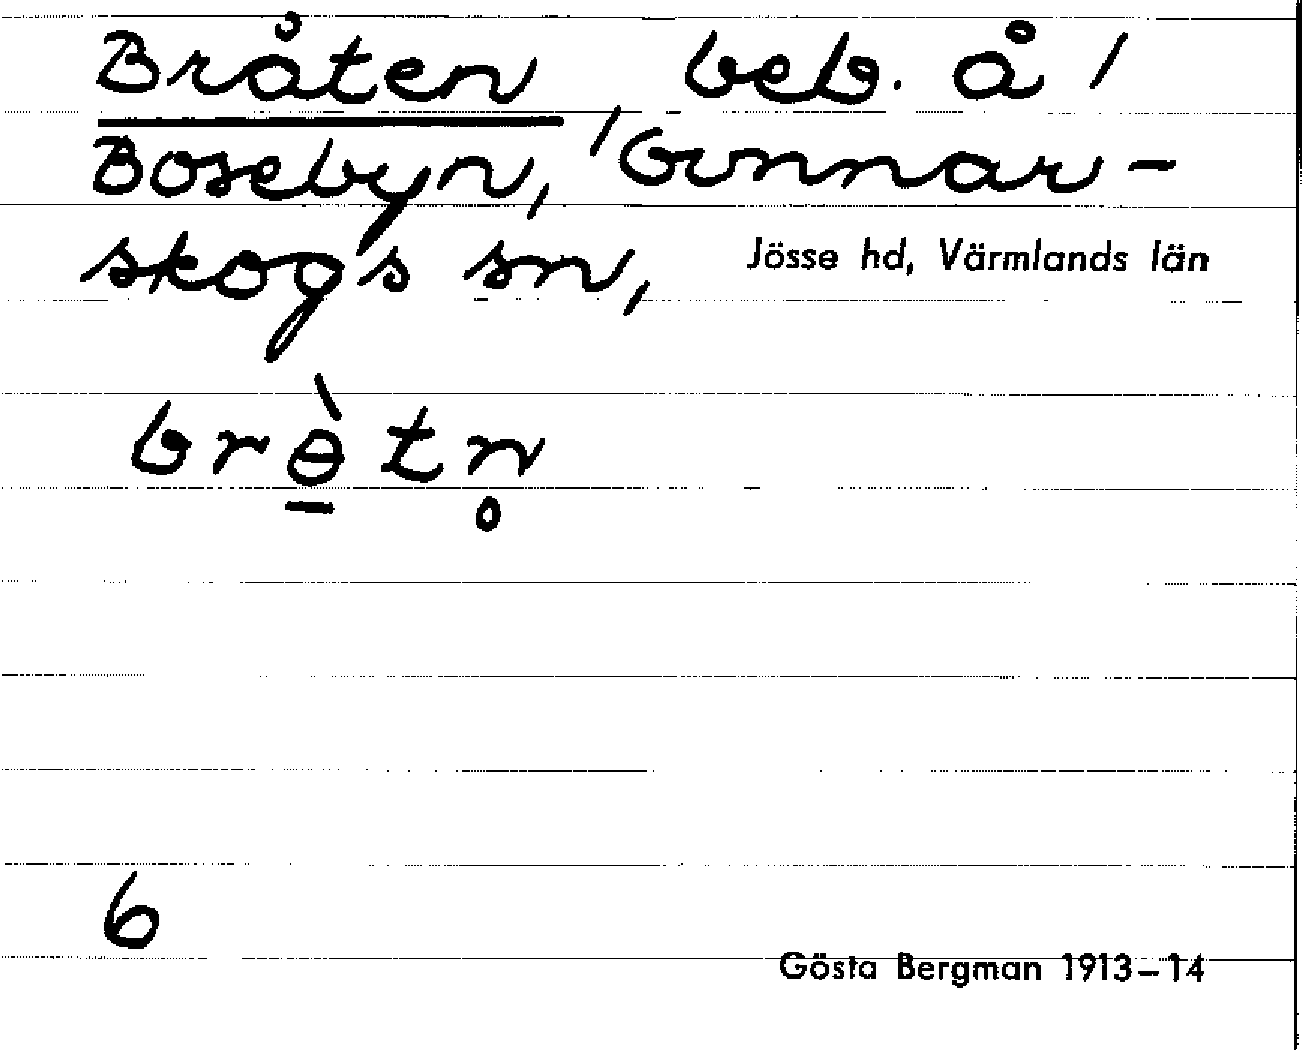 Bråten, beb. å /
Bosebyn, / Gunnar-
skogs sn, Jösse hd, Värmlands län
brɵ̠̀tn̥
6
Gösta Bergman 1913-14